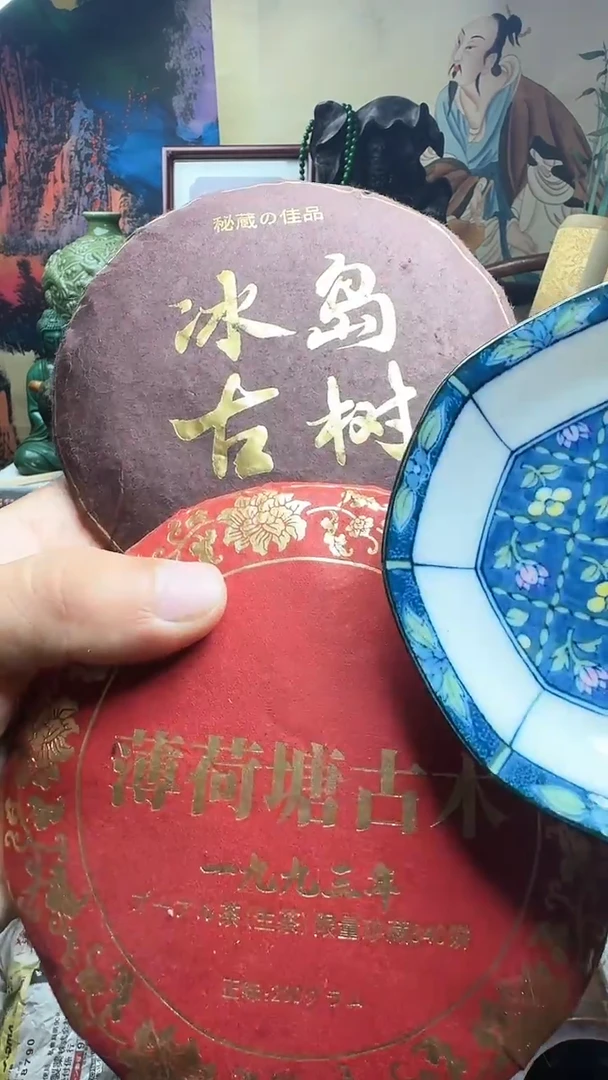 秘蔵の佳品
冰岛
古树
薄荷塘古木
一九九三年
プーアル茶(生茶) 限量珍藏
正味:200グラム
8790